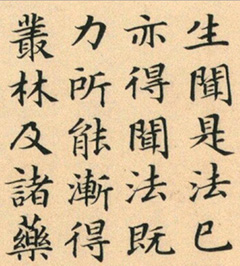 生聞是法已
亦得聞法既
力所能漸得
叢林及諸藥